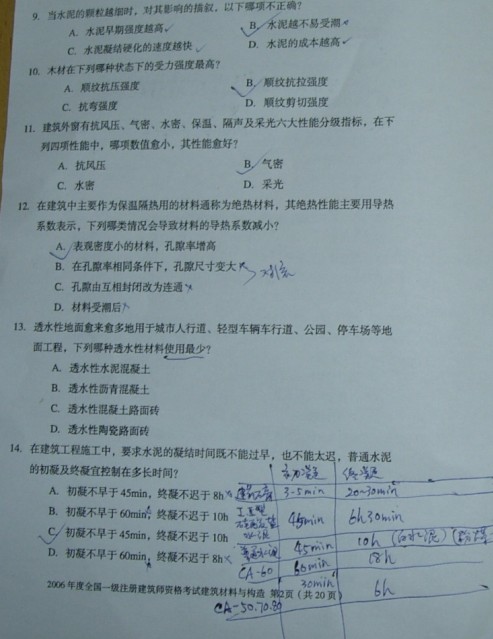 9. 当水泥的颗粒越细时，对其影响的描叙，以下哪项不正确?
A. 水泥早期强度越高 B. 水泥越不易受潮
C. 水泥凝结硬化的速度越快 D. 水泥的成本越高
10. 木材在下列哪种状态下的受力强度最高?
A. 顺纹抗压强度 B. 顺纹抗拉强度
C. 抗弯强度 D. 顺纹剪切强度
11. 建筑外窗有抗风压、气密、水密、保温、隔声及采光六大性能分级指标，在下
列四项性能中，哪项数值愈小，其性能愈好?
A. 抗风压 B. 气密
C. 水密 D. 采光
12. 在建筑中主要作为保温隔热用的材料通称为绝热材料，其绝热性能主要用导热
系数表示，下列哪类情况会导致材料的导热系数减小?
A. 表观密度小的材料，孔隙率增高
B. 在孔隙率相同条件下，孔隙尺寸变大
C. 孔隙由互相封闭改为连通
D. 材料受潮后
13. 透水性地面愈来愈多地用于城市人行道、轻型车辆车行道、公园、停车场等地
面工程，下列哪种透水性材料使用最少?
A. 透水性水泥混凝土
B. 透水性沥青混凝土
C. 透水性混凝土路面砖
D. 透水性陶瓷路面砖
14. 在建筑工程施工中，要求水泥的凝结时间既不能过早，也不能太迟，普通水泥
的初凝及终凝宜控制在多长时间? 初凝 终凝
A. 初凝不早于 45min，终凝不迟于 8h 建筑石膏 3-5min 20~30min
B. 初凝不早于 60min，终凝不迟于 10h 45min 6h30min
C. 初凝不早于 45min，终凝不迟于 10h 45min 10h (白水泥)
D. 初凝不早于 60min，终凝不迟于 8h CA-60 60min 18h
2006 年度全国一级注册建筑师资格考试建筑材料与构造 第2页（共 20 页） 30min 6h
CA-50.70.80